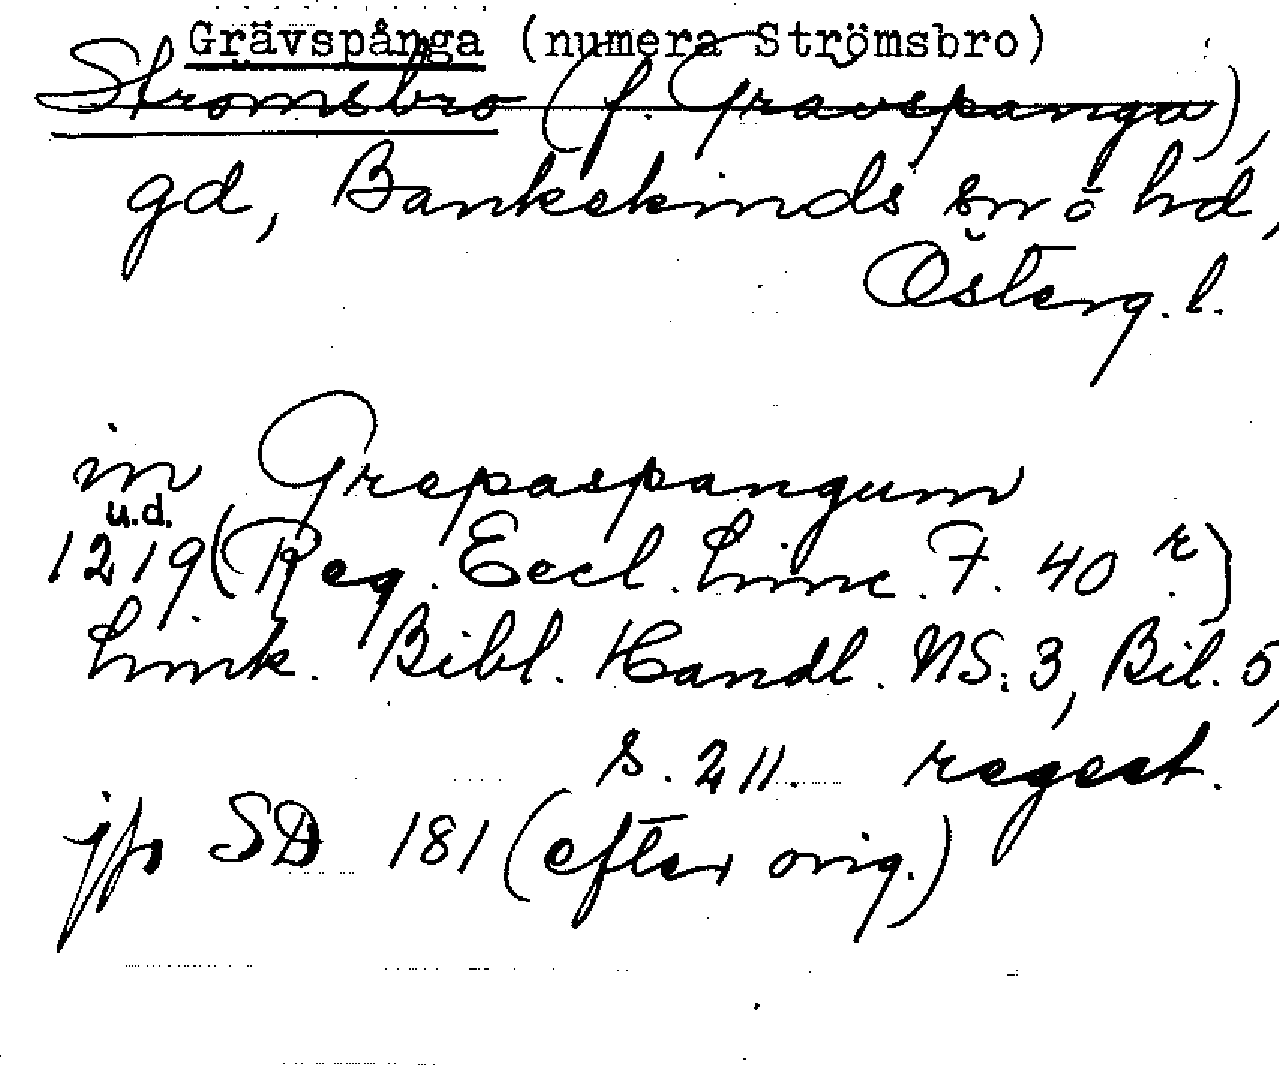 Grävspånga (numera Strömsbro)
Strömsbro (f. Grävspånga),
gd, Bankekinds sn o hd,
Österg. l.
in Grepaspangum
u.d.
1219 (Reg. Eccl. Linc. F. 40 r.)
Link. Bibl. Handl. NS. 3, Bil. 5,
s. 211. regest.
jfr SD 181 (efter orig.)